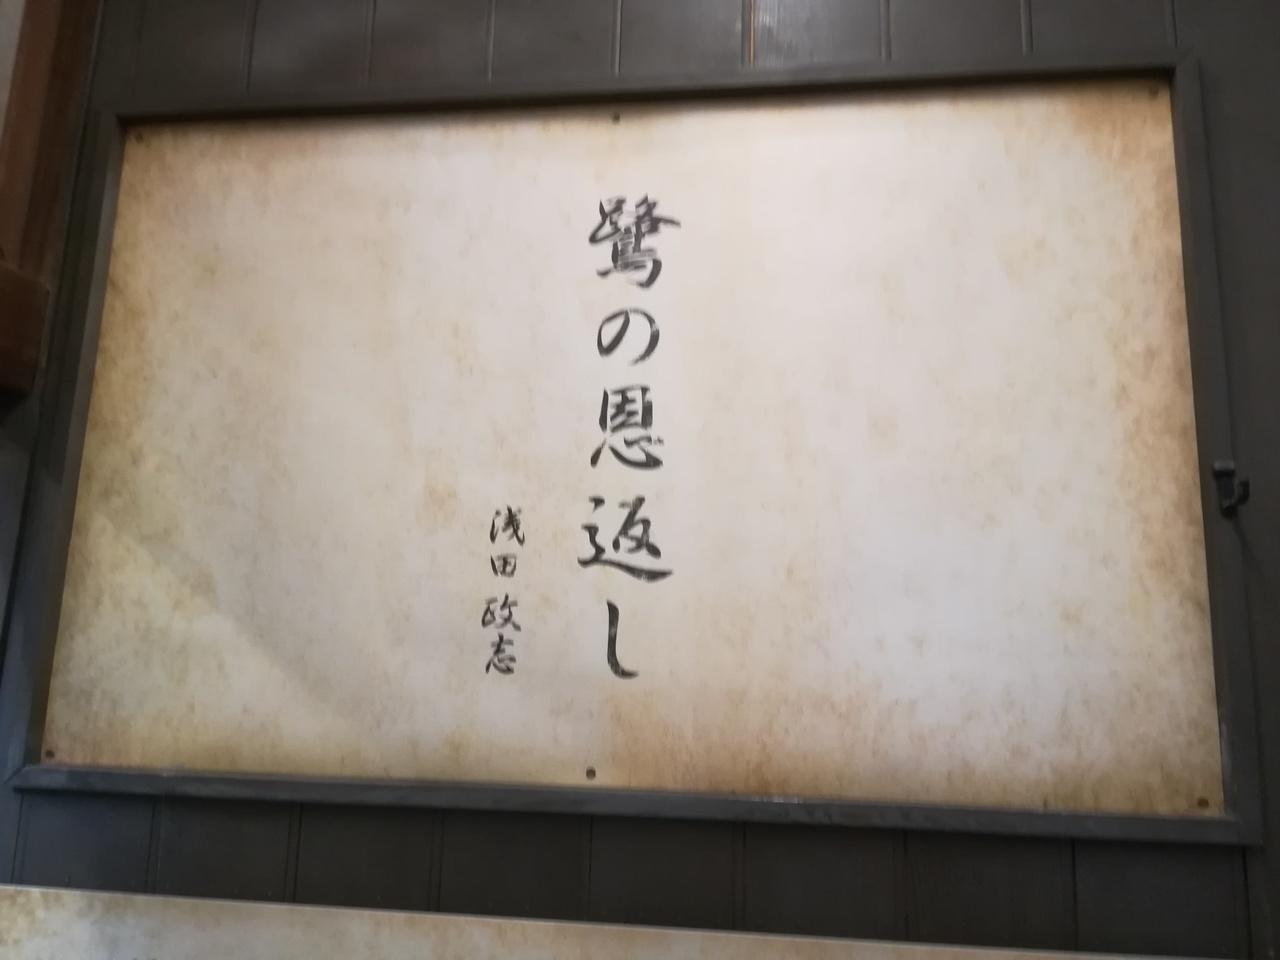 鷺の恩返し
浅田政志